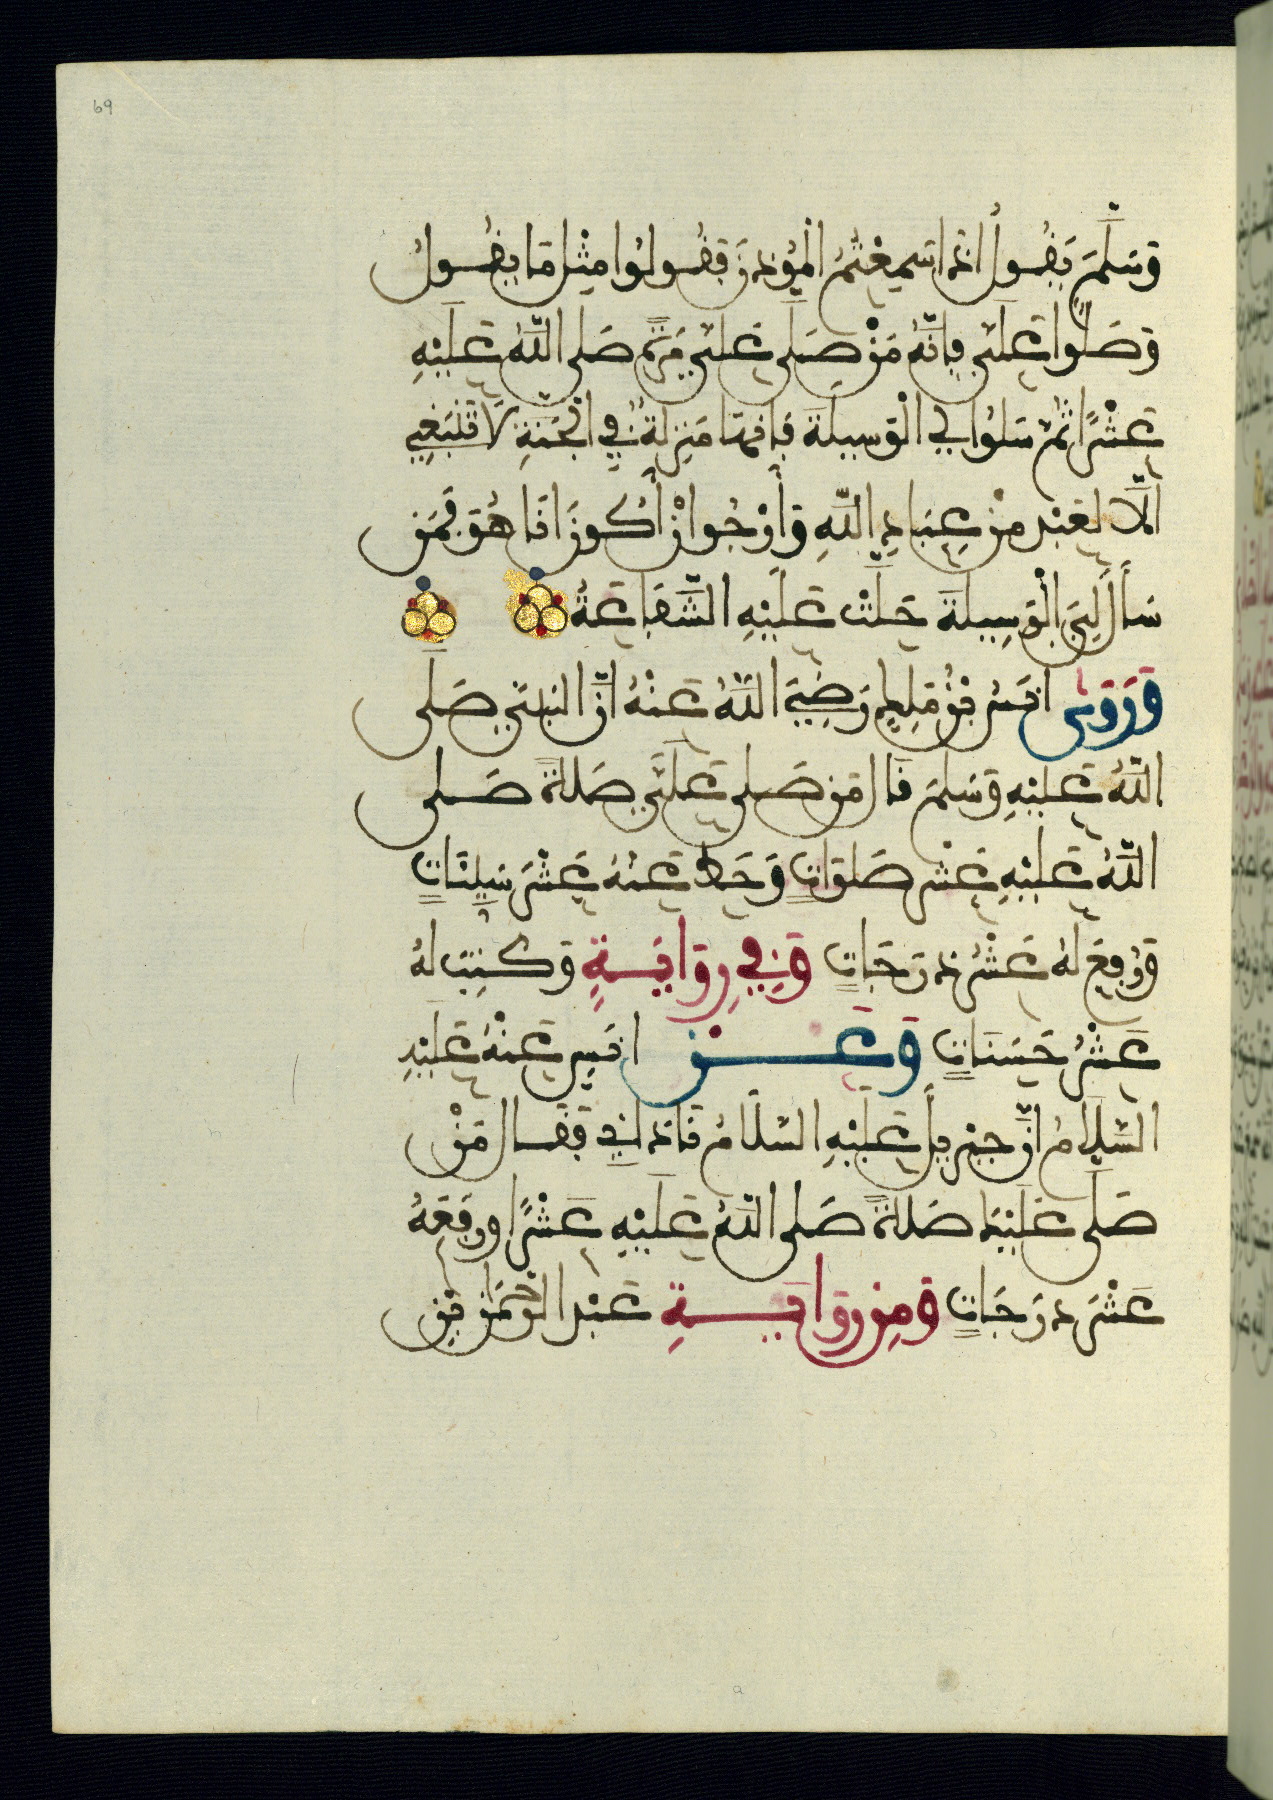 69
وَسَلَّمَ يَقُولُ اذا سَمِعْتُمُ الْمُؤذِنَ فَقُولُوا مِثْلَ مَا يَقُولُ
وَصَلُّوا عَلَيَّ فإنَّهُ مَنْ صَلَّى عَلَيَّ مَرَّةً صَلى اللَّهُ عَلَيْهِ
عَشْرًا ثُمَّ سَلُوا لِي الْوَسِيلَةَ فَإنهَا مَنزِلَةٌ فِي الْجَنَّةِ لَا تَنْبَغِي
الَّا لِعَبْد مِنْ عِبَادِ اللَّهِ وَأَرْجُوا نْ أَكُونَ انَا هُوَ فَمَن
سَأَلَ لِيَ الْوَسِيلَةَ حَلَّتْ عَلَيْهِ الشَّفَاعَةُ
وَرَوَى انَسُ بْنُ مَلِكٍ رَضِيَ اللَّهُ عَنْهُ انَّ النبَيّ صَلَّى
اللَّهُ عَلَيْهِ وَسَلَّمَ قَالَ مَن صَلَّى عَلَيَّ صَلاةً صَلى
اللَّهُ عَلَيْهِ عَشْرَ صَلَوَاتٍ وَحَطَّ عَنْهُ عَشْرَ سَيِئَاتٍ
وَرُفِعَ لَهُ عَشْرُ دَرَجَاتٍ وَفِي رِوَايَةٍ وَكَتَبَ لَهُ
عَشْرُ حَسَنَاتٍ وَعَنْ انَسٍ عَنْهُ عَلَيْهِ
السَّلَامُ انَّ جِبْرِيلَ عَلَيْهِ السَّلَامُ نَادَانِي فَقَالَ مَنْ
صَلَّى عَلَيْكَ صَلاةً صَلى اللَّهُ عَلَيْهِ عَشْرًا ورفَعَهُ
عَشْرَ دَرَجَاتٍ وَمِن رِوَايَةِ عَبْدِ الرَّحْمَنِ بْنِ